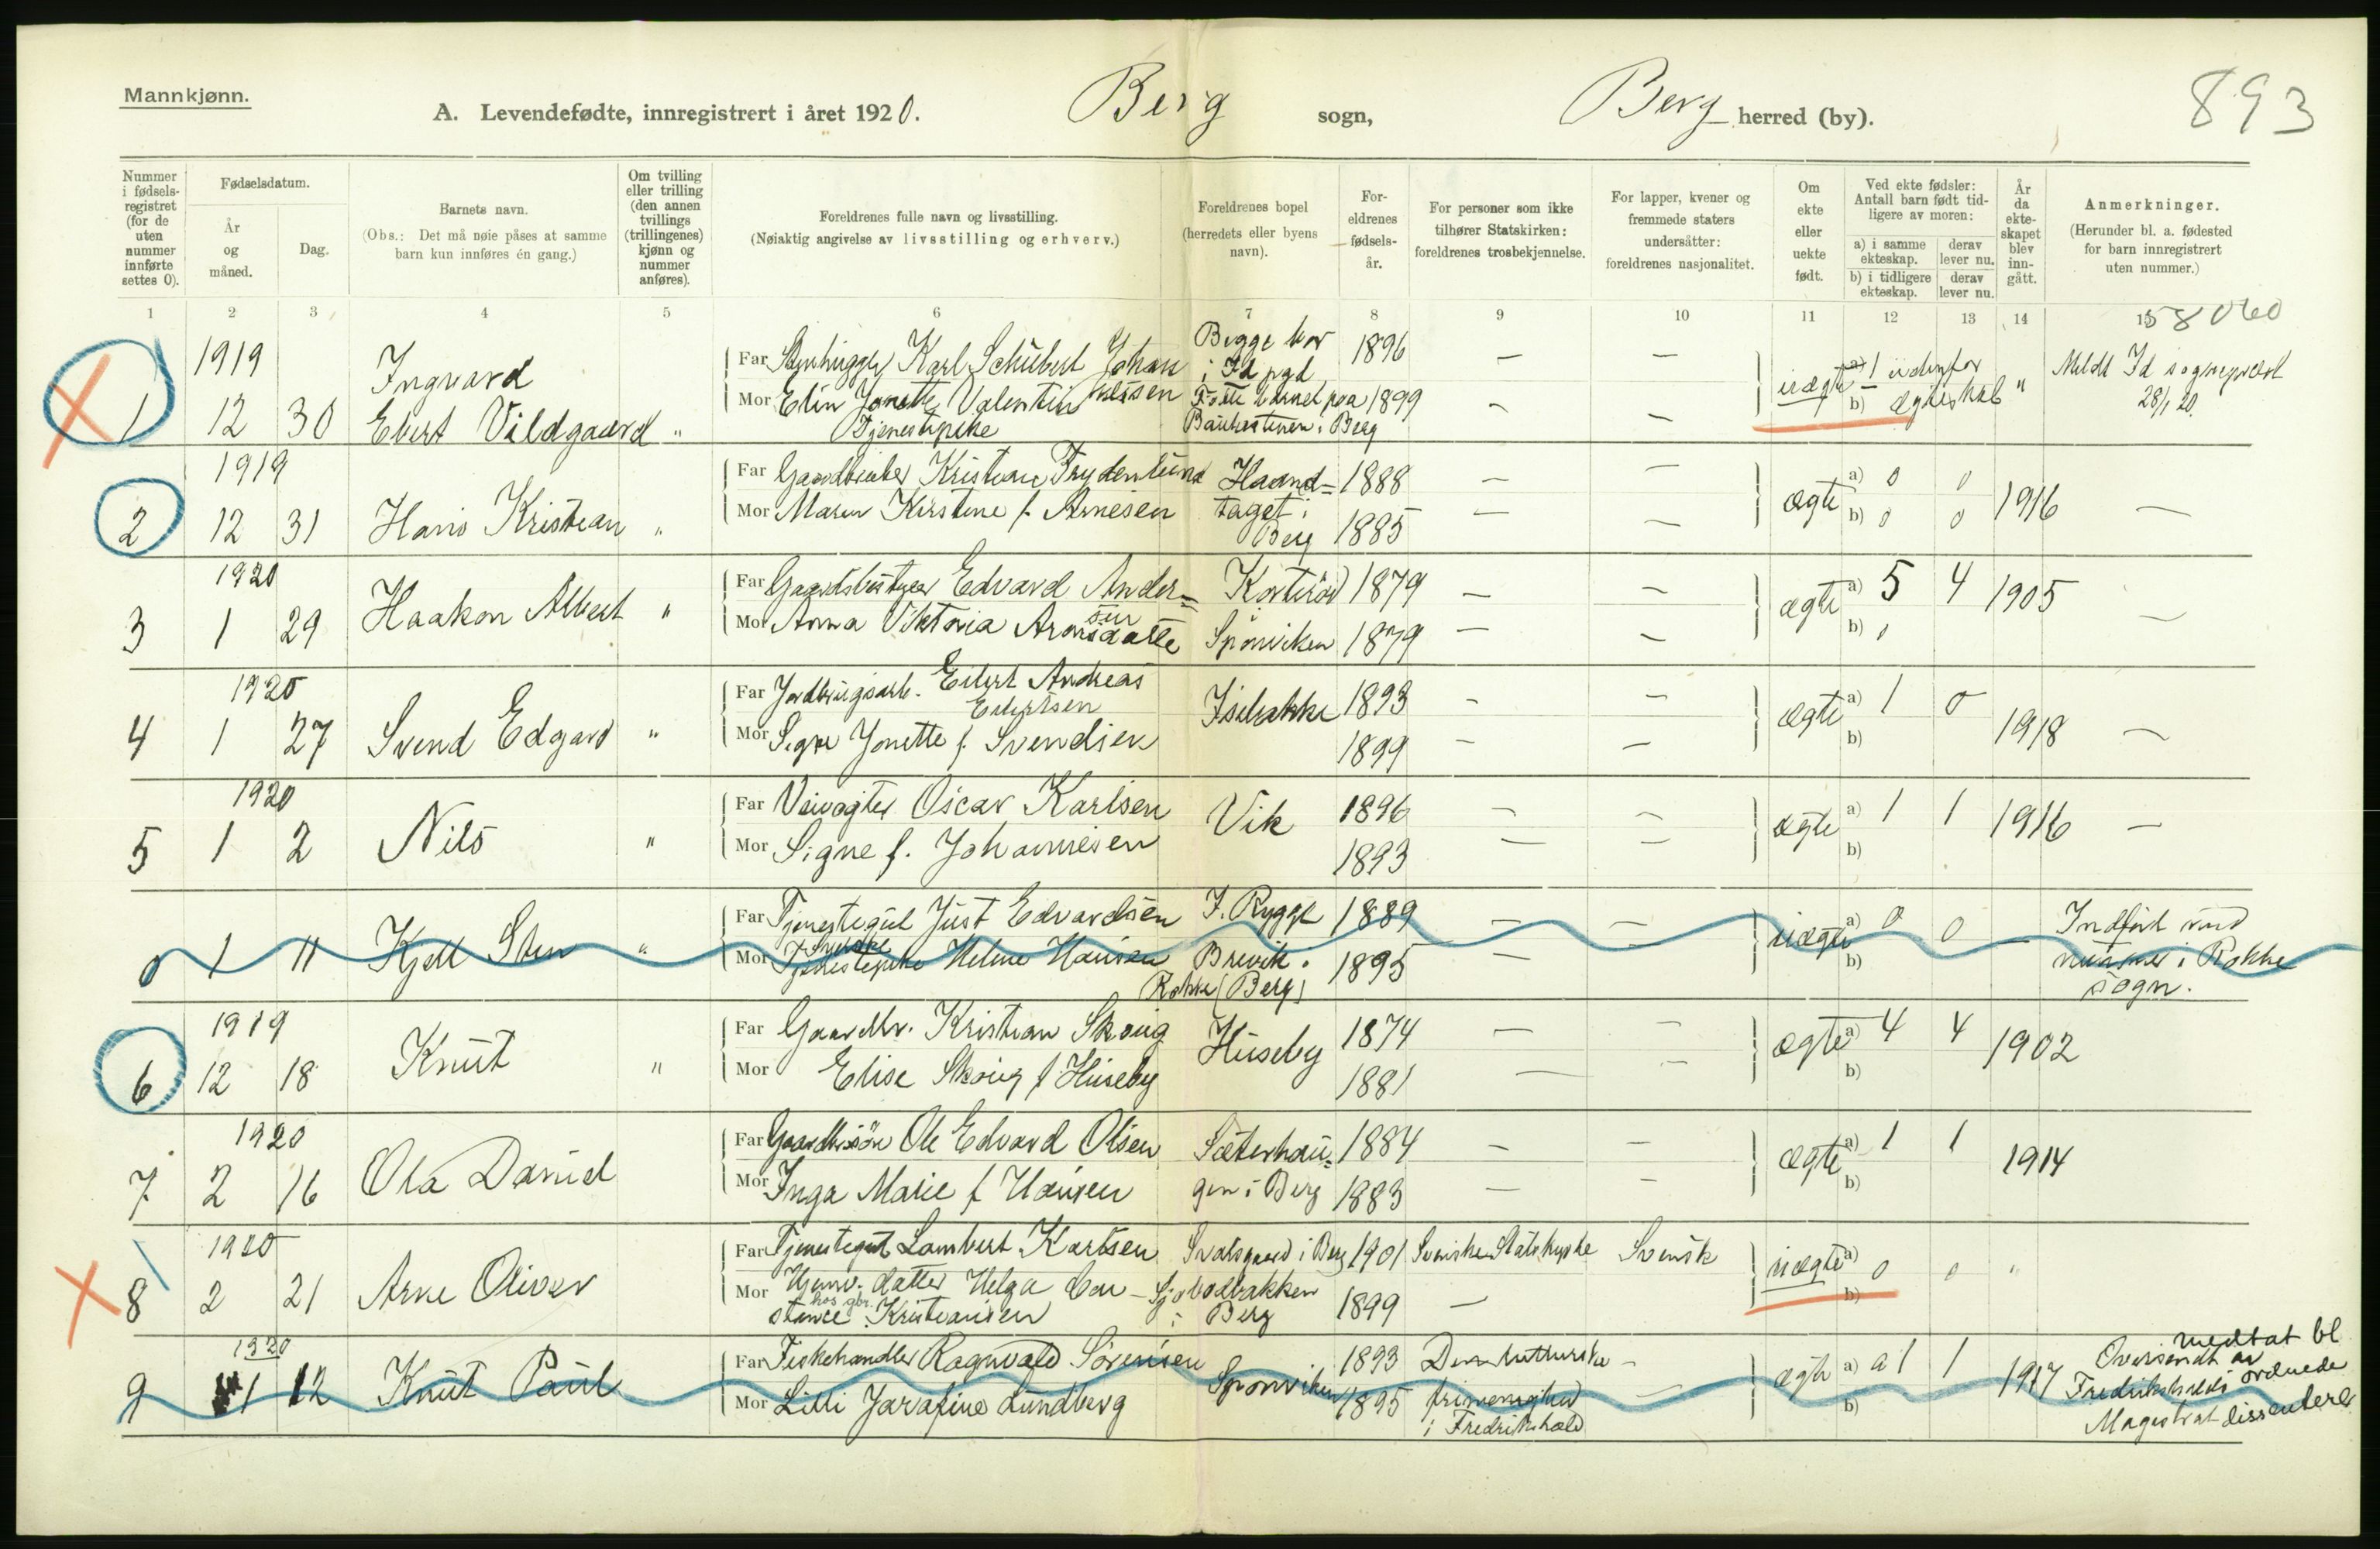 Mannkjønn.
A. Levendefødte, innregistrert i året 1920. Berg sogn, Berg herred (by).
893
Nummer i fødselsregistret (for de uten nummer innførte settes 0).
Fødselsdatum.
År og måned.
Dag.
Barnets navn.
(Obs.: Det må nøie påses at samme barn kun innføres én gang.)
Om tvilling eller trilling (den annen tvillings (trillingenes) kjønn og nummer anføres).
Foreldrenes fulle navn og livsstilling.
(Nøiaktig angivelse av livsstilling og erhverv.)
Foreldrenes bopel (herredets eller byens navn).
Foreldrenes fødselsår.
For personer som ikke tilhører Statskirken: foreldrenes trosbekjennelse.
For lapper, kvener og fremmede staters undersåtter: foreldrenes nasjonalitet.
Om ekte eller uekte født.
Ved ekte fødsler: Antall barn født tidligere av moren:
a) i samme ekteskap. derav lever nu.
b) i tidligere ekteskap. derav lever nu.
År da ekteskapet blev inngått.
Anmerkninger.
(Herunder bl. a. fødested for barn innregistrert uten nummer.)
1 2 3 4 5 6 7 8 9 10 11 12 13 14 15
58060
1919
1 12 30 Ingvard
Ebert Vildgaard "
Far Stenhugger Karl Schubert Johan
nessen
Mor Elin Jonette Valentin
Tjenestepike
Begge bor
i Id pgd
Fødte barnet paa
Bautastenen i Berg
1896 —
1899 —
uægte a) 1 udenfor
b) ægteskab "
Meldt Id sogneprest
28/1 20.
1919
2 12 31 Hans Kristian "
Far Gaardbruker Kristian Frydenlund
Mor Maren Kirstine f. Arnesen
Haand=
taget i
Berg
1888 —
1885 —
ægte a) 0 0
b) 0 0
1916 —
1920
3 1 29 Haakon Albert "
Far Gaardsbestyrer Edvard Ander=
sen
Mor Anna Viktoria Aronsdatte
Sponviken
1879 —
1879 —
ægte a) 5 4
b) 0
1905 —
1920
4 1 27 Svend Edgard "
Far Jordbrugsarb. Eilert Andreas
Eilertsen
Mor Signe Jonette f. Svendsen
Isebakke
1893 —
1899 —
ægte a) 1 0
b)
1918 —
1920
5 1 2 Nils "
Far Veivogter Oscar Karlsen
Mor Signe f. Johannesen
Vik
1896 —
1893 —
ægte a) 1 1
b)
1916 —
0 1 11 Kjell Sten "
Far Tjenestegut Just Edvardsen
Mor Tjenestepike Helene Hansen
F. Rygge
Brevik i
Rokke (Berg)
1889 —
1895 —
uægte a) 0 0
b)
—
Indført med
nummer i Rokke
sogn.
1919
6 12 18 Knut "
Far Gaardbr. Kristian Skoug
Mor Elise Skoug f. Huseby
Huseby
1874 —
1881 —
ægte a) 4 4
b)
1902
1920
7 2 16 Ola Daniel
Far Gaardbrsøn Ole Edvard Olsen
Mor Inga Marie f. Hansen
Sæterhau=
gen i Berg
1884 —
1883 —
ægte a) 1 1
b)
1914
1920
8 2 21 Arne Oliver
Far Tjenestegut Lambert Karlsen
Mor Hjemv. datter Helga Con-
hos gbr.
stance Kristiansen
i Berg
1901 Svenske Statskyrke Svensk
1899 —
uægte a) 0 0 "
b)
1920
9 1 12 Knut Paul
Far Fiskehandler Ragnvald Sørensen
Mor Lilli Josefine Lundberg
Sponviken
1893 Den lutherske —
1895 frimenighed
i Fredrikshald
ægte a) 1 1
b)
1917
medtat bl
Oversendt av
Fredrikshalds ordnede
Magistrat dissentere